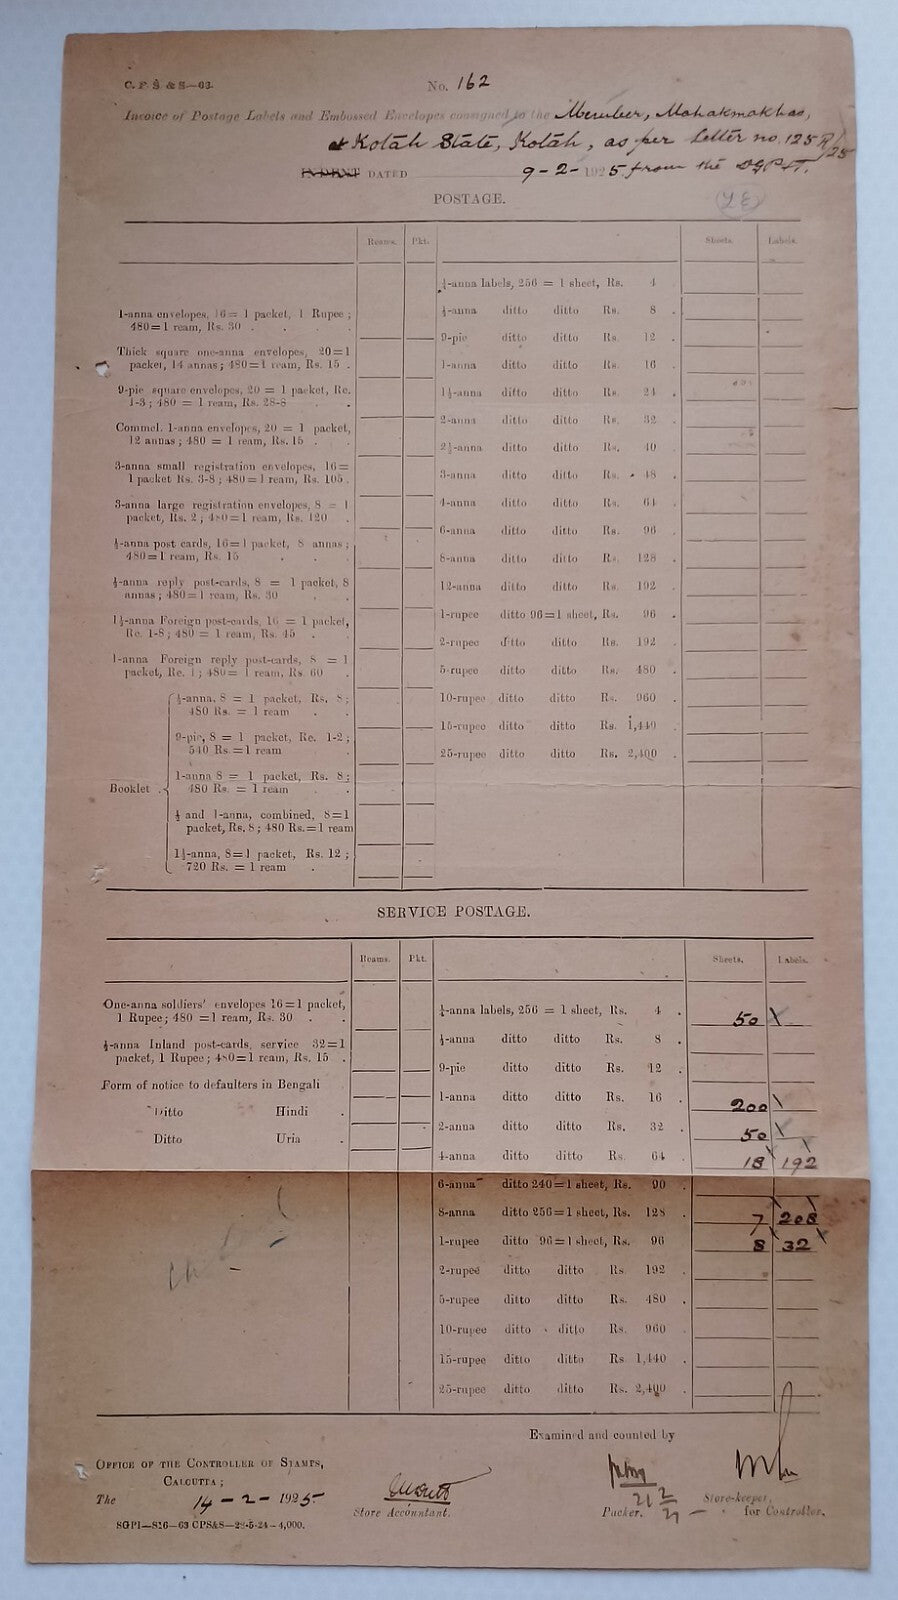 C. P S & S—63.
No. 162
Invoice of Postage Labels and Embossed Envelopes consigned to the Member, Mahakmakhas,
at Kotah State, Kotah, as per letter no. 125 R/25
INDENT DATED 9-2-1925 from the DGP&T.
POSTAGE.
Reams. Pkt. Sheets. Labels.
1-anna envelopes, 16=1 packet, 1 Rupee;
480=1 ream, Rs. 30 . . . .
Thick square one-anna envelopes, 20=1
packet, 14 annas; 480=1 ream, Rs. 15 .
9-pie square envelopes, 20 = 1 packet, Re.
1-3; 480 = 1 ream, Rs. 28-8 . .
Commel. 1-anna envelopes, 20 = 1 packet,
12 annas; 480 = 1 ream, Rs. 15 . .
3-anna small registration envelopes, 16=
1 packet Rs. 3-8; 480=1 ream, Rs. 105 .
3-anna large registration envelopes, 8 = 1
packet, Rs. 2; 480=1 ream, Rs. 120 .
½-anna post cards, 16=1 packet, 8 annas;
480=1 ream, Rs. 15 . . .
½-anna reply post-cards, 8 = 1 packet, 8
annas; 480=1 ream, Rs. 30 . .
1½-anna Foreign post-cards, 16 = 1 packet,
Re. 1-8; 480 = 1 ream, Rs. 45 . .
1-anna Foreign reply post-cards, 8 = 1
packet, Re. 1; 480= 1 ream, Rs. 60 .
Booklet .
½-anna, 8 = 1 packet, Rs. 8;
480 Rs. = 1 ream . .
9-pie, 8 = 1 packet, Re. 1-2;
540 Rs. = 1 ream .
1-anna 8 = 1 packet, Rs. 8;
480 Rs. = 1 ream . .
½ and 1-anna, combined, 8=1
packet, Rs. 8; 480 Rs. = 1 ream
1½-anna, 8=1 packet, Rs. 12;
720 Rs. = 1 ream .
¼-anna labels, 256 = 1 sheet, Rs. 4
½-anna ditto ditto Rs. 8 .
9-pie ditto ditto Rs. 12 .
1-anna ditto ditto Rs. 16 .
1½-anna ditto ditto Rs. 24 .
2-anna ditto ditto Rs. 32 .
2½-anna ditto ditto Rs. 40 .
3-anna ditto ditto Rs. 48 .
4-anna ditto ditto Rs. 64 .
6-anna ditto ditto Rs. 96 .
8-anna ditto ditto Rs. 128 .
12-anna ditto ditto Rs. 192 .
1-rupee ditto 96=1 sheet, Rs. 96 .
2-rupee ditto ditto Rs. 192 .
5-rupee ditto ditto Rs. 480 .
10-rupee ditto ditto Rs. 960
15-rupee ditto ditto Rs. 1,440 .
25-rupee ditto ditto Rs. 2,400 .
SERVICE POSTAGE.
Reams. Pkt. Sheets. Labels.
One-anna soldiers' envelopes 16=1 packet,
1 Rupee; 480 =1 ream, Rs. 30 . .
½-anna Inland post-cards, service 32=1
packet, 1 Rupee; 480=1 ream, Rs. 15 .
Form of notice to defaulters in Bengali
Ditto Hindi .
Ditto Uria .
¼-anna labels, 256 = 1 sheet, Rs. 4 . 50
½-anna ditto ditto Rs. 8 .
9-pie ditto ditto Rs. 12 .
1-anna ditto ditto Rs. 16 . 200
2-anna ditto ditto Rs. 32 . 50
4-anna ditto ditto Rs. 64 . 18 192
6-anna ditto 240=1 sheet, Rs. 90 .
8-anna ditto 256=1 sheet, Rs. 128 . 7 208
1-rupee ditto 96=1 sheet, Rs. 96 . 8 32
2-rupee ditto ditto Rs. 192 .
5-rupee ditto ditto Rs. 480 .
10-rupee ditto ditto Rs. 960 .
15-rupee ditto ditto Rs 1,440 .
25-rupee ditto ditto Rs. 2,400 .
Examined and counted by
OFFICE OF THE CONTROLLER OF STAMPS,
CALCUTTA;
The 14-2-1925.
Store Accountant.
21/2
Packer.
Store-keeper,
for Controller.
SGPI—S16—63 CPS&S—28-5-24—4,000.